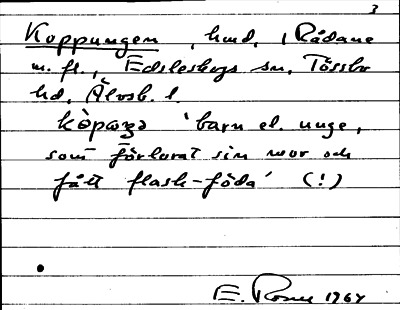 3
Koppungen, hmd, i Rådane
m. fl., Edsleskogs sn, Tössbo
hd, Älvsb. l.
kòpωŋə 'barn el. unge,
som förlorat sin mor och
fått flask-föda' (!)
E. 1964